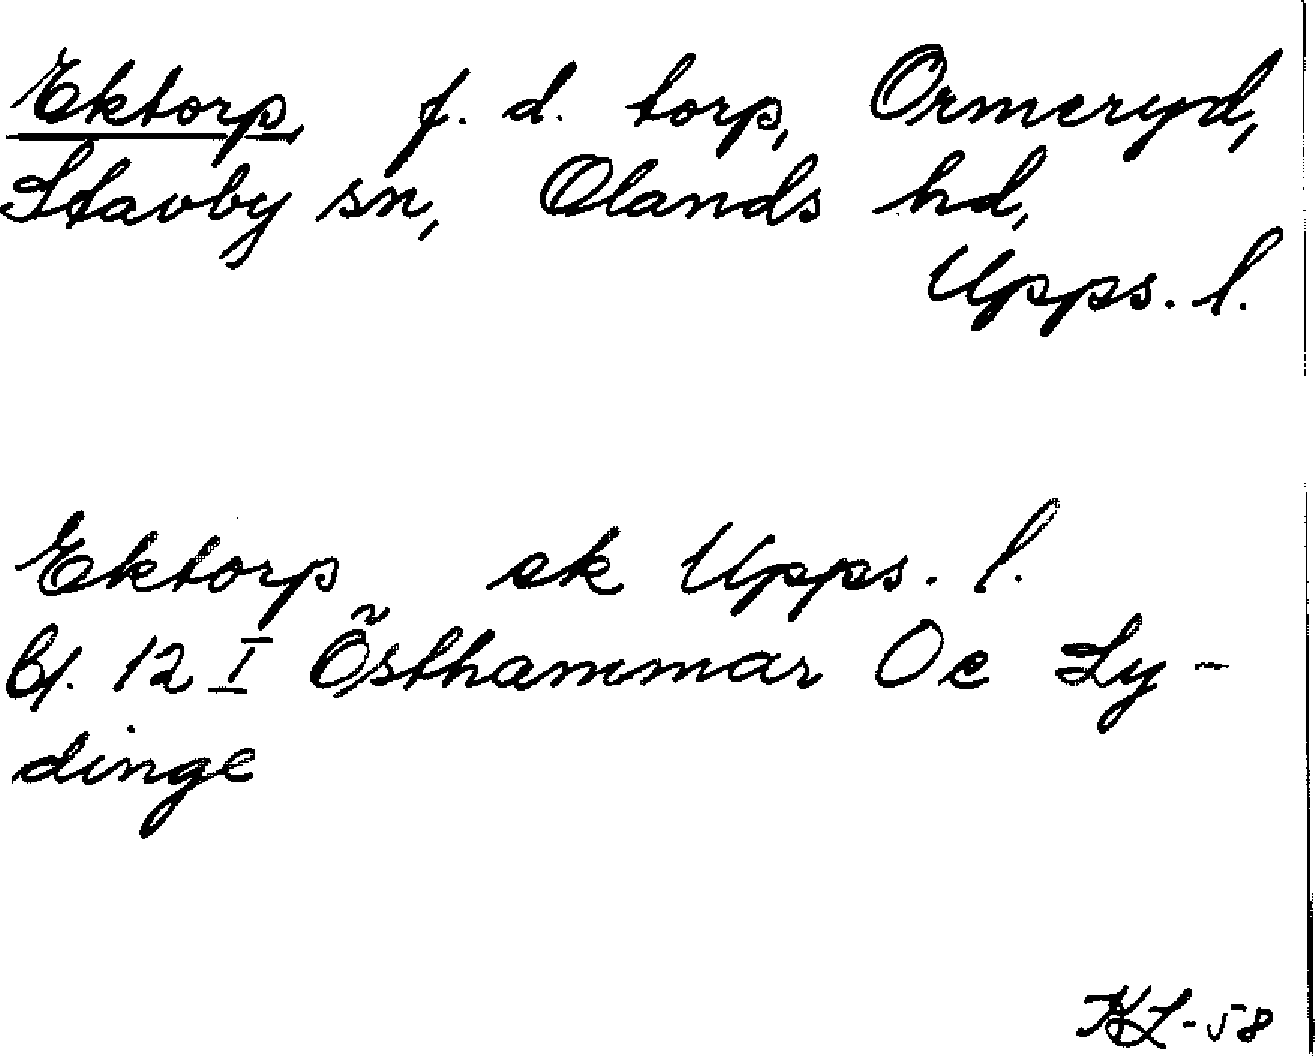 Ektorp, f. d. torp, Ormeryd,
Stavby sn, Olands hd,
Upps. l.
Ektorp ek Upps. l.
bl. 12 I Östhammar Oe Ly-
dinge
KL-58